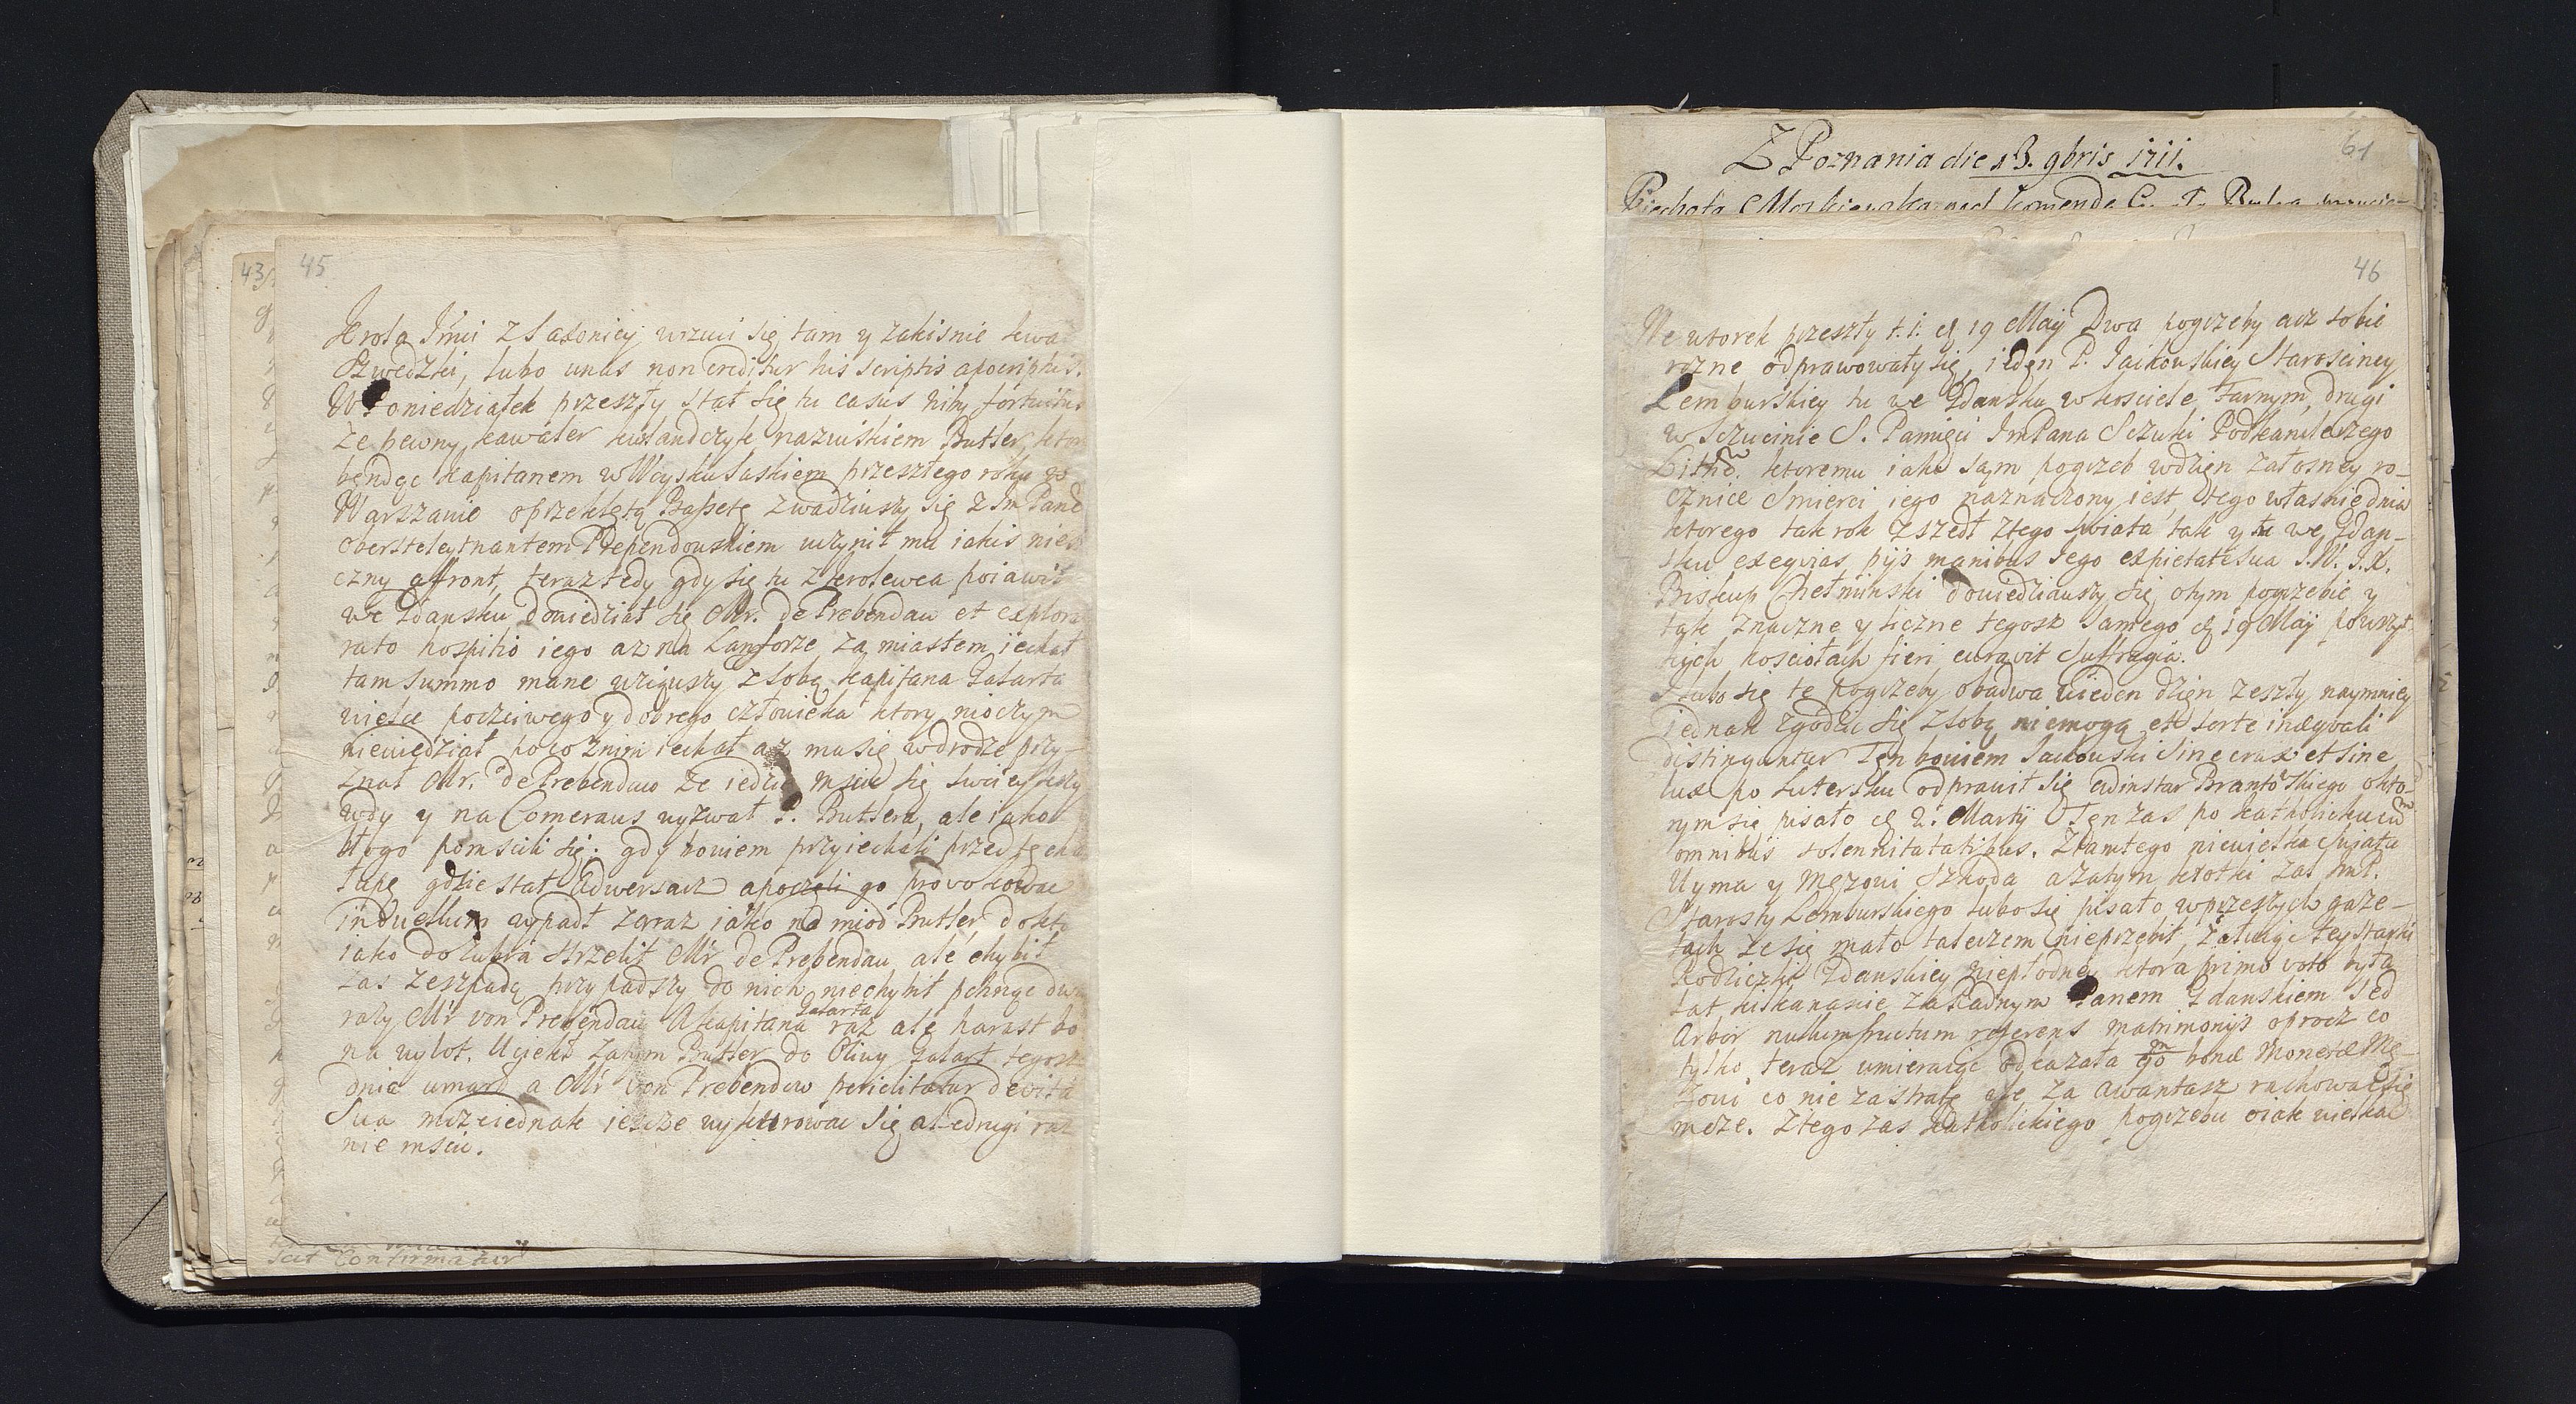 43
45
Krola Jmci z Saxoniey wrzuci się tam y zakisnie kwa
Szwedzki, lubo unus non creditur his scriptis apocriphis.
W Poniedziałek przeszły stał się tu casus niby fortuitus
że pewny kawaler kurlandczyk nazwiskiem Butler, ktor
bendąc kapitanem w Woysku Saskiem przeszłego roku w
Warszawie o przeklętą Bassetę zwadziwszy się z Jm Pane
Obersteleytnantem Prependowskiem uczynił mu iakis nies
czny affront, teraz tedy gdy się tu z Krolewca poiawił
we Gdansku dowiedział się Mr. de Prebendau et explora
rato hospitio iego az na Lanforze za miastem iechał
tam summo mane wziąwszy z sobą kapitana Galarta
wielce poczciwego y dobrego człowieka ktory nioczym
niewiedział poco znim iechał az mu się w drodze przy-
znał Mr. de Prebendaw ze iedzie mscic się swoiey krzy
wdy y na Comeraus wyzwał P. Butlera, ale iako
kogo pomscili się: gdy bowiem przyiechali przed tę cha
łupę gdzie stał Adwersarz a poczęli go provocowac
in duellum wypadł zaraz iako na miod Butler, do kto
iako do Zubra strzelił Mr de Prebendau, ale chybił
zas ze szpadą przypadszy do nich niechybił pchnąc dwa
razy Mr von Prebendau A kapitana Galarta raz ale harast bo
na wylot. Uciekł zatym Buttler do Oliwy Galart tegosz
dnia umarł a Mr von Prebendaw periclitatur de vita
sua moze iednak ieszcze wykurowac się ale drugi raz
nie mscic.
scit confirmatur
Z Poznania die 13. 9bris 1711.
61
Piechota Moskiewska pod komendą
46
We wtorek przeszły t. i. d 19 Maij Dwa pogrzeby acz sobie
rozne odprawowały się, ieden P. Jackowskiey Starosciney
Lemburskiey tu we Gdansku w kosciele Farnym, drugi
w Sczucinie S. Pamięci JmPana Sczuki Podkanclerzego
Lithō. ktoremu iako sam pogrzeb w dzien załosney ro-
cznice smierci iego naznaczony iest, tego własnie dnia
ktorego tak rok zszedł z tego swiata tak y tu we Gdan-
sku exequias pijs manibus Jego ex pietate sua J. W. J. X.
Biskup Chełminski dowiedziawszy się o tym pogrzebie y
tak znaczne y liczne tegosz samego d 19 Maij po wszyt-
kich kosciołach fieri curavit suffragia.
Lubo się te pogrzeby obadwa w ieden dzien zeszły naymniey
iednak zgodzic się z sobą niemogą et sorte inaequali
distinguntur Ten bowiem Jackowski sine crux et sine
lux po Lutersku odprawił się ad instar Brantowskiego o kto-
rym się pisało d 2. Martij Ten zas po katholicku cū
omnibus solennitatatibus. Z tamtego niewielka swiatu
Uyma y Męzowi szkoda a zatym krotki zal JmP.
Starosty Lemburskiego lubo się pisało w przeszłych gaze-
tach ze się mało talerzem nieprzebił, załuiąc tey starki
Rodziczki Gdanskiey niepłodney ktora primo voto była
lat kilkanascie za Ładnym Panem Gdanskiem sed
Arbor nullum fructum referens matrimonijs oprocz co
tylko teraz umieraiąc odkazała 90 m bonae Monetae Mę-
zowi co nie za stratę ale za awantasz rachowac się
moze. Z tego zas katholickiego pogrzebu oiak wielka